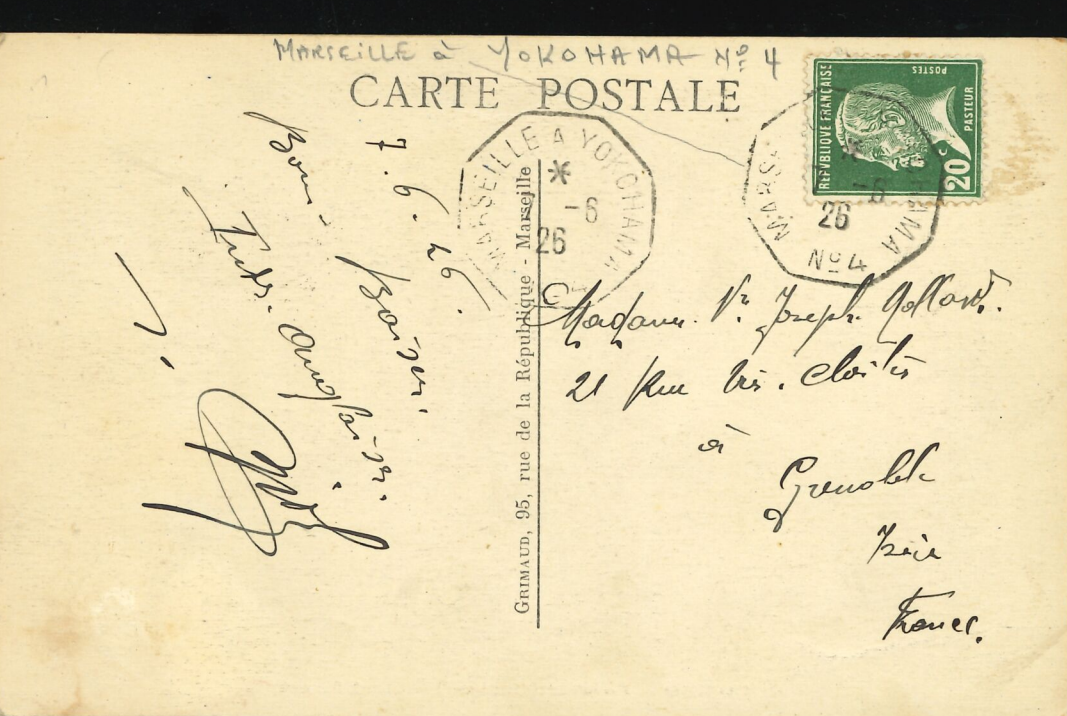 MARSEILLE à YOKOHAMA Nº 4
CARTE POSTALE
REPVBLIQUE FRANÇAISE
POSTES
PASTEUR
20c
MARSEILLE A YOKOHAMA
*
7 -6
26
MARSE AMA
*
-6
26
Nº 4
7.6.26
Bons Baisers
GRIMAUD, 95, rue de la République - Marseille
Madame Vve Joseph
21 Rue
à
Grenoble
Isère
France.